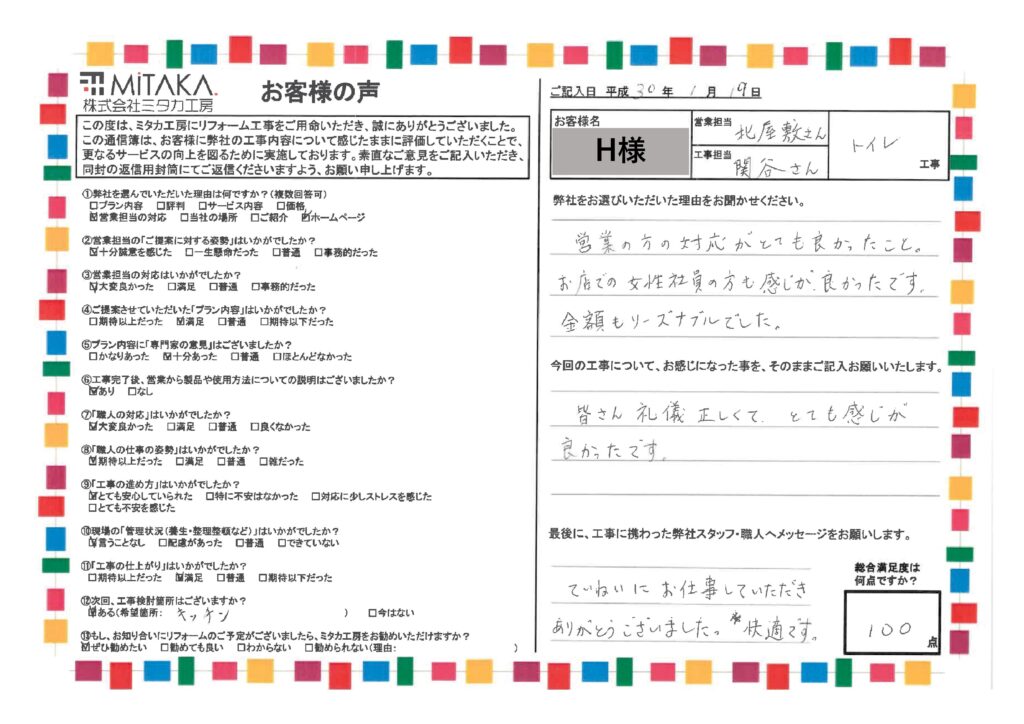 MiTAKA.
株式会社ミタカ工房
お客様の声
この度は、ミタカ工房にリフォーム工事をご用命いただき、誠にありがとうございました。
この通信簿は、お客様に弊社の工事内容について感じたままに評価していただくことで、
更なるサービスの向上を図るために実施しております。素直なご意見をご記入いただき、
同封の返信用封筒にてご返信くださいますよう、お願い申し上げます。
①弊社を選んでいただいた理由は何ですか?(複数回答可)
□プラン内容 □評判 □サービス内容 □価格
☑営業担当の対応 □当社の場所 □ご紹介 ☑ホームページ
②営業担当の「ご提案に対する姿勢」はいかがでしたか?
☑十分誠意を感じた □一生懸命だった □普通 □事務的だった
③営業担当の対応はいかがでしたか?
☑大変良かった □満足 □普通 □事務的だった
④ご提案させていただいた「プラン内容」はいかがでしたか?
□期待以上だった ☑満足 □普通 □期待以下だった
⑤プラン内容に「専門家の意見」はございましたか?
□かなりあった ☑十分あった □普通 □ほとんどなかった
⑥工事完了後、営業から製品や使用方法についての説明はございましたか?
☑あり □なし
⑦「職人の対応」はいかがでしたか?
☑大変良かった □満足 □普通 □良くなかった
⑧「職人の仕事の姿勢」はいかがでしたか?
☑期待以上だった □満足 □普通 □雑だった
⑨「工事の進め方」はいかがでしたか?
☑とても安心していられた □特に不安はなかった □対応に少しストレスを感じた
□とても不安を感じた
⑩現場の「管理状況(養生・整理整頓など)」はいかがでしたか?
☑言うことなし □配慮があった □普通 □できていない
⑪「工事の仕上がり」はいかがでしたか?
□期待以上だった ☑満足 □普通 □期待以下だった
⑫次回、工事検討箇所はございますか?
☑ある(希望箇所: キッチン ) □今はない
⑬もし、お知り合いにリフォームのご予定がございましたら、ミタカ工房をお勧めいただけますか?
☑ぜひ勧めたい □勧めても良い □わからない □勧められない(理由: )
ご記入日 平成 30 年 1 月 19 日
お客様名
H様
営業担当 北屋敷さん
工事担当 関谷さん
トイレ 工事
弊社をお選びいただいた理由をお聞かせください。
営業の方の対応がとても良かったこと。
お店での女性社員の方も感じが良かったです。
金額もリーズナブルでした。
今回の工事について、お感じになった事を、そのままご記入お願いいたします。
皆さん礼儀正しくて、とても感じが
良かったです。
最後に、工事に携わった弊社スタッフ・職人へメッセージをお願いします。
ていねいにお仕事していただき
ありがとうございました。快適です。
総合満足度は
何点ですか?
100 点